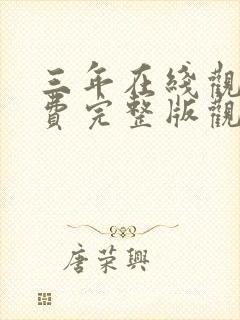 三年在綫觀
費完整版觀
唐荣興